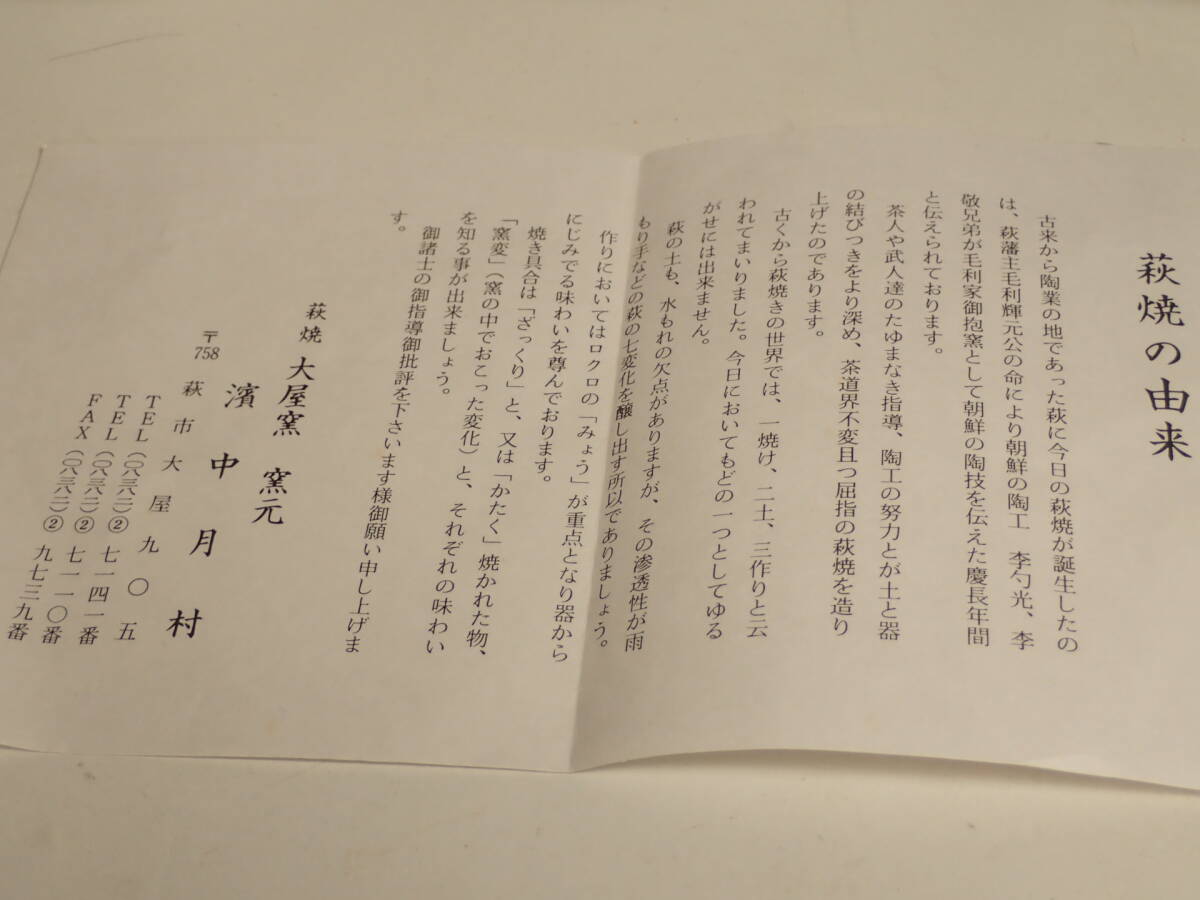 萩焼の由来
古来から陶業の地であった萩に今日の萩焼が誕生したの
は、萩藩主毛利輝元公の命により朝鮮の陶工　李勺光、李
敬兄弟が毛利家御抱窯として朝鮮の陶技を伝えた慶長年間
と伝えられております。
茶人や武人達のたゆまなき指導、陶工の努力とが土と器
の結びつきをより深め、茶道界不変且つ屈指の萩焼を造り
上げたのであります。
古くから萩焼きの世界では、一焼け、二土、三作りと云
われてまいりました。今日においてもどの一つとしてゆる
がせには出来ません。
萩の土も、水もれの欠点がありますが、その渗透性が雨
もり手などの萩の七変化を醸し出す所以でありましょう。
作りにおいてはロクロの「みょう」が重点となり器から
にじみでる味わいを尊んでおります。
焼き具合は「ざっくり」と、又は「かたく」焼かれた物、
「窯変」（窯の中でおこった変化）と、それぞれの味わい
を知る事が出来ましょう。
御諸士の御指導御批評を下さいます様御願い申し上げま
す。
萩焼　大屋窯　窯元
濱中月村
〒758　萩市大屋九〇五
TEL（〇八三八二）②七一四一番
TEL（〇八三八二）②七一一〇番
FAX（〇八三八二）②九七三九番